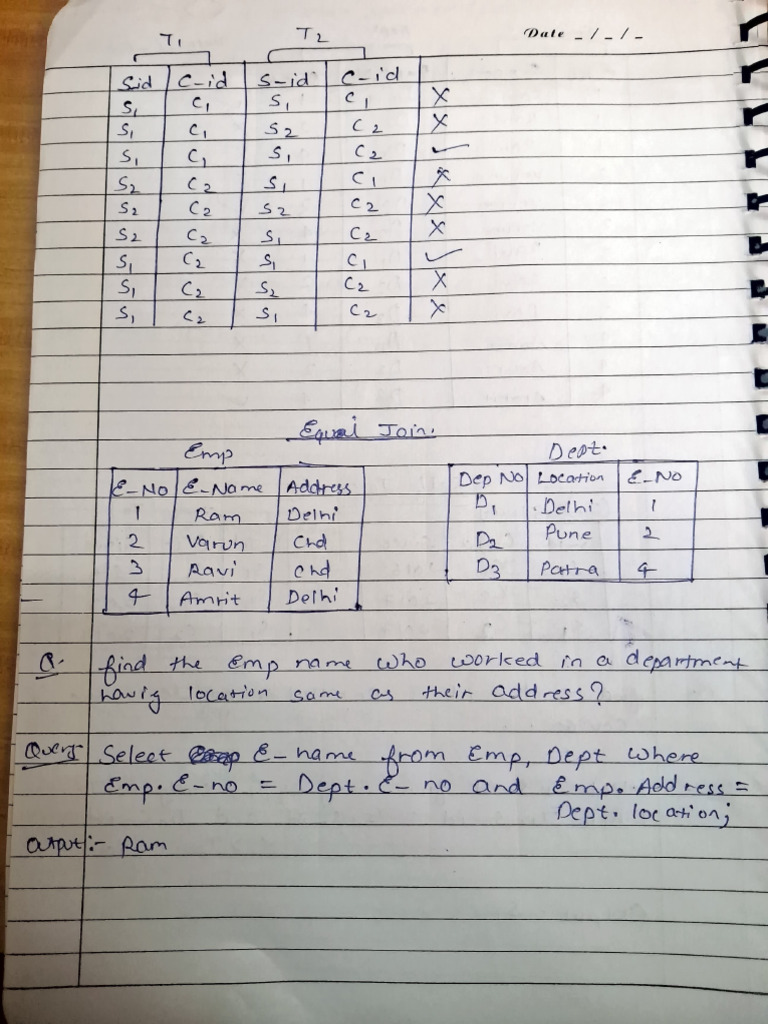 Date _/_/_
T1 T2
S-id C-id S-id C-id
S1 C1 S1 C1 X
S1 C1 S2 C2 X
S1 C1 S1 C2 ✓
S2 C2 S1 C1 X
S2 C2 S2 C2 X
S2 C2 S1 C2 X
S1 C2 S1 C1 ✓
S1 C2 S2 C2 X
S1 C2 S1 C2 X
Equal Join.
Emp
E-No E-Name Address
1 Ram Delhi
2 Varun Chd
3 Ravi Chd
4 Amrit Delhi
Dept.
Dep No Location E-No
D1 Delhi 1
D2 Pune 2
D3 Patna 4
Q. find the Emp name who worked in a department
havig location same as their address?
Query Select E-name from Emp, Dept where
Emp. E-no = Dept. E-no and Emp. Address =
Dept. location;
Output:- Ram